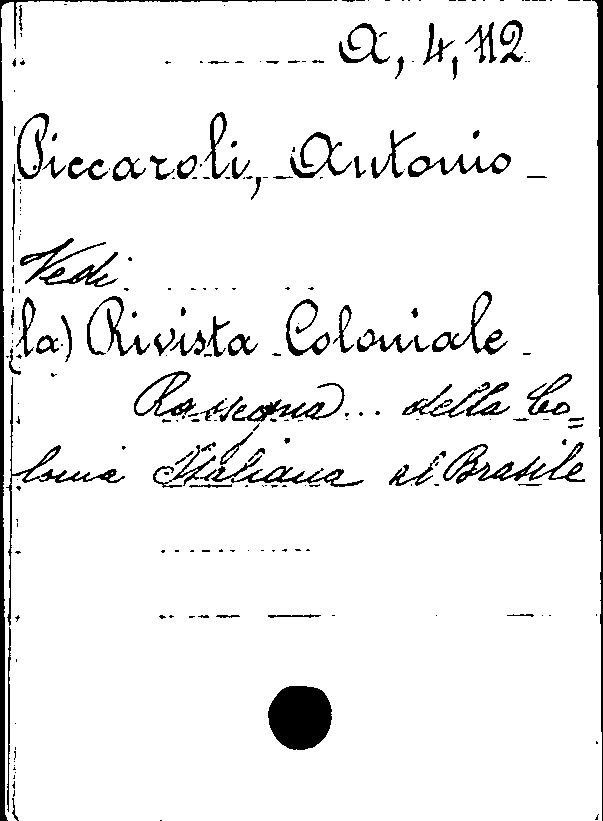 A, 4, 112
Piccaroli, Antonio
Vedi
(la) Rivista Coloniale
Rassegna... della Co=
lonia Italiana al Brasile